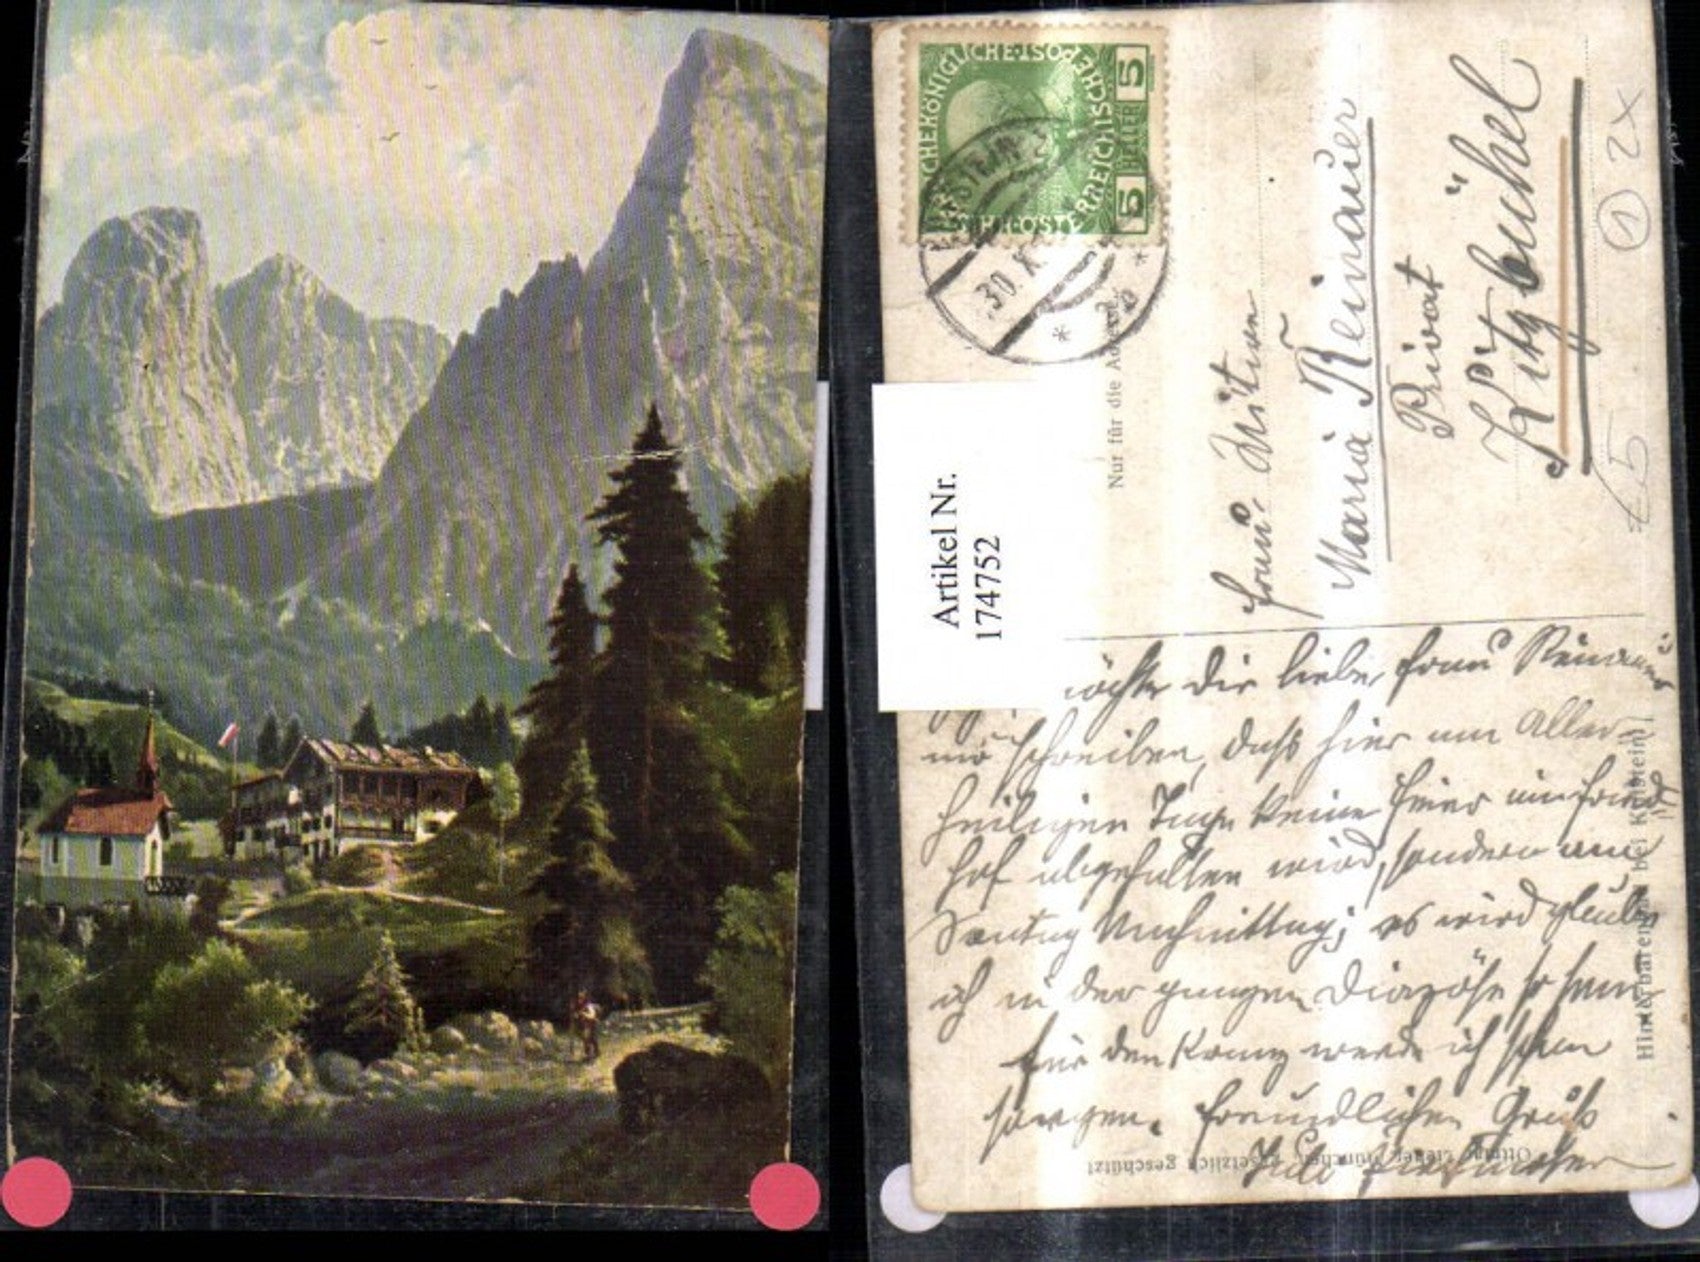 KAISERKÖNIGLICHE·ÖSTERREICHISCHE·POST
5 HELLER 5
30.X
Nur für die Adresse
Artikel Nr.
174752
Frau Witwe
Maria Reinauer
Privat
Kitzbühel
① 2x
5
möchte Dir liebe Frau Reinauer
schreiben, daß hier am Aller-
heiligen Tage keine Feier im Fried
hof abgehalten wird, sondern am
Sontag Nachmittag; es wird glaube
ich in der ganzen Diözöse so sein
für den Kranz werde ich schon
sorgen. Freundlichen Gruß
Hinterbärenbad bei Kufstein
Ottmar Zieher, München. Gesetzlich geschützt